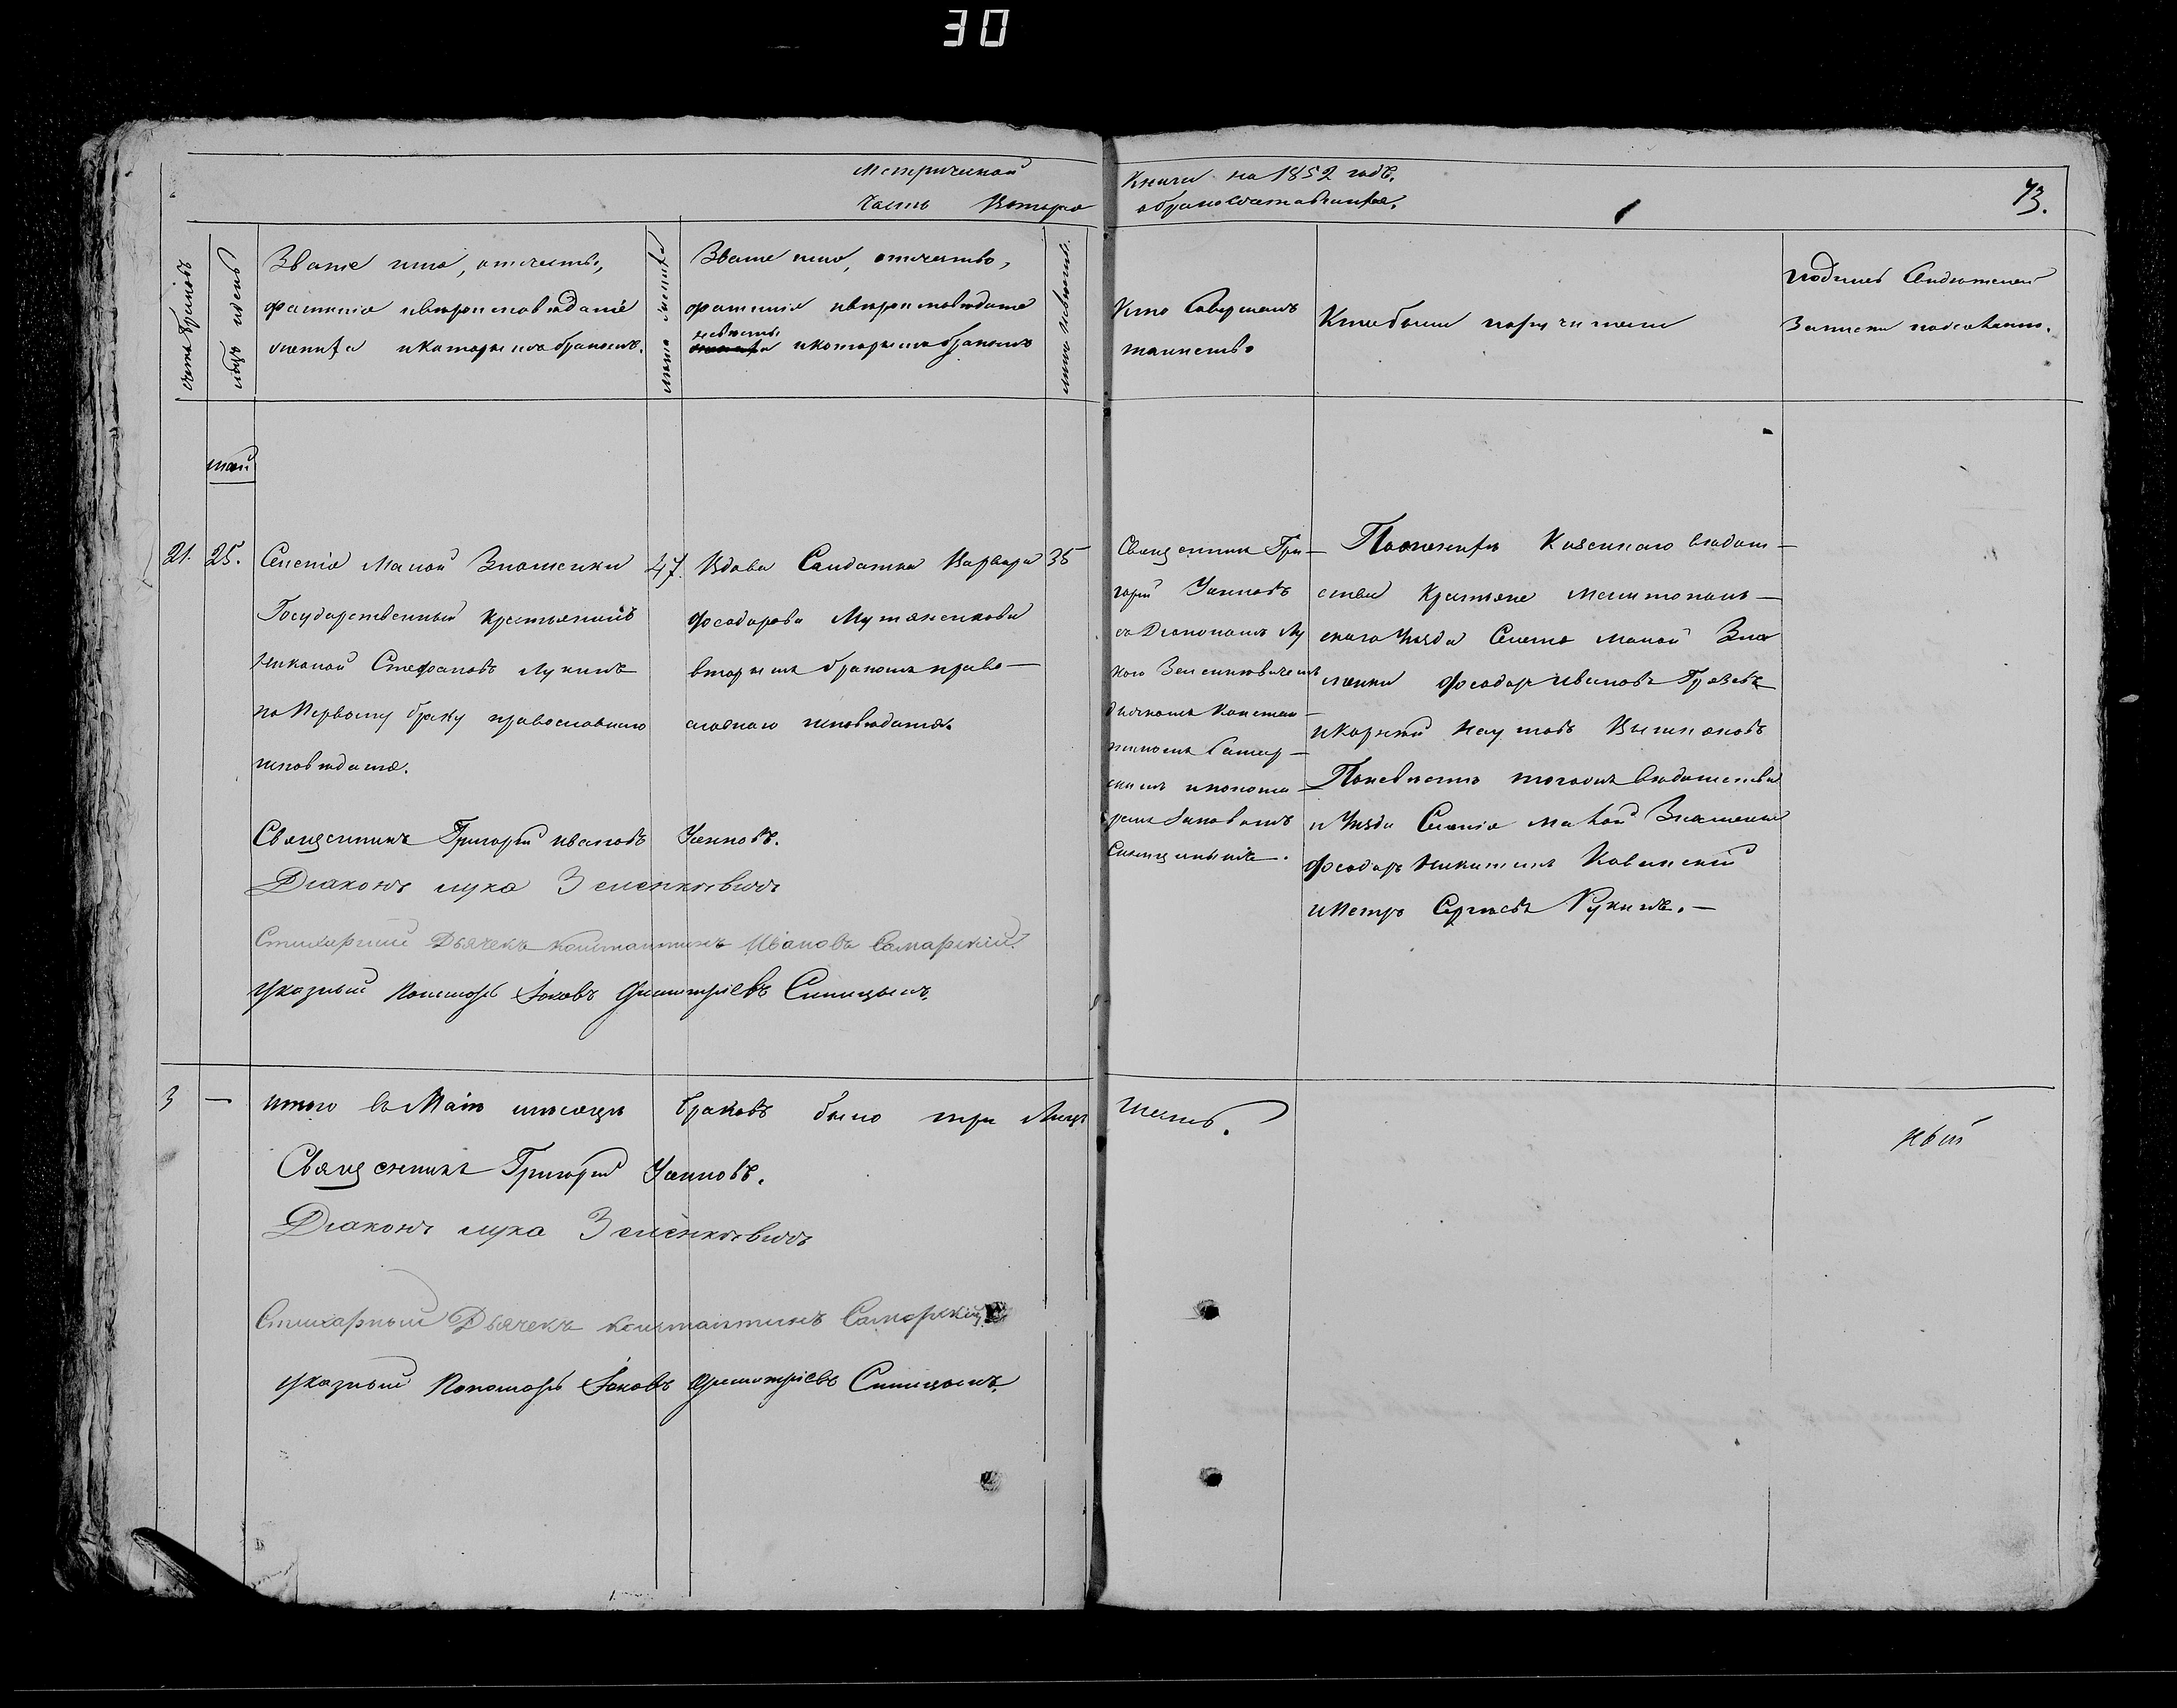 30
Метрической
Часть Вторая
Книги на 1852 годъ.
о бракосочетавшихся.
73.
счетъ браковъ
мѣсяцъ и день
Званіе имя, отчество,
фамилія и вѣроисповѣданіе
жениха и которымъ бракомъ.
лѣта жениха
Званіе имя, отчество,
фамилія и вѣроисповѣданіе
невѣсты
и которымъ бракомъ
лѣта невѣсты.
Кто Совершалъ
таинство
Кто были поручители
подпись Свидетелей
Записи по желанію.
маій
21. 25.
Селенія Малой Знаменки
Государственный крестьянинъ
Николай Стефановъ Лукинъ
по Первому браку православнаго
исповѣданія.
47.
Вдова Солдатка Варвара
Феодорова Мутяженкова
вторымъ бракомъ право—
славнаго исповѣданія.
35
Священникъ Гри—
горій Уаиновъ
съ Діакономъ Лу
кою Зеленкевичемъ
дьячкомъ Констан—
тиномъ Самар—
скимъ и понома—
ремъ Іаковомъ
Синицынымъ.
По женихѣ Казеннаго вѣдом—
ства Крестьяне Мелитополь—
скаго Уѣзда Селенія малой Зна
менки Феодоръ Ивановъ Грязевъ
и Корнѣй Наумовъ Вишняковъ
По невѣстѣ тогожъ вѣдомства
и Уѣзда Селенія малой Знаменки
Феодоръ Никитинъ Ковинскій
и Петръ Сергѣевъ Рукинъ.—
Священникъ Григорій Ивановъ Уаиновъ.
Діаконъ Лука Зеленкевичъ
Стихарный Дьячекъ Константинъ Ивановъ Самарскій
Указный Пономарь Іаковъ Димитріевъ Синицынъ.
3 — Итого въ Маіи мѣсяцѣ браковъ было три Лицъ
шесть.
ный
Священникъ Григорій Уаиновъ.
Діаконъ Лука Зеленкевичъ
Стихарный Дьячекъ Константинъ Самарскій
Указный Пономарь Іаковъ Димитріевъ Синицынъ.